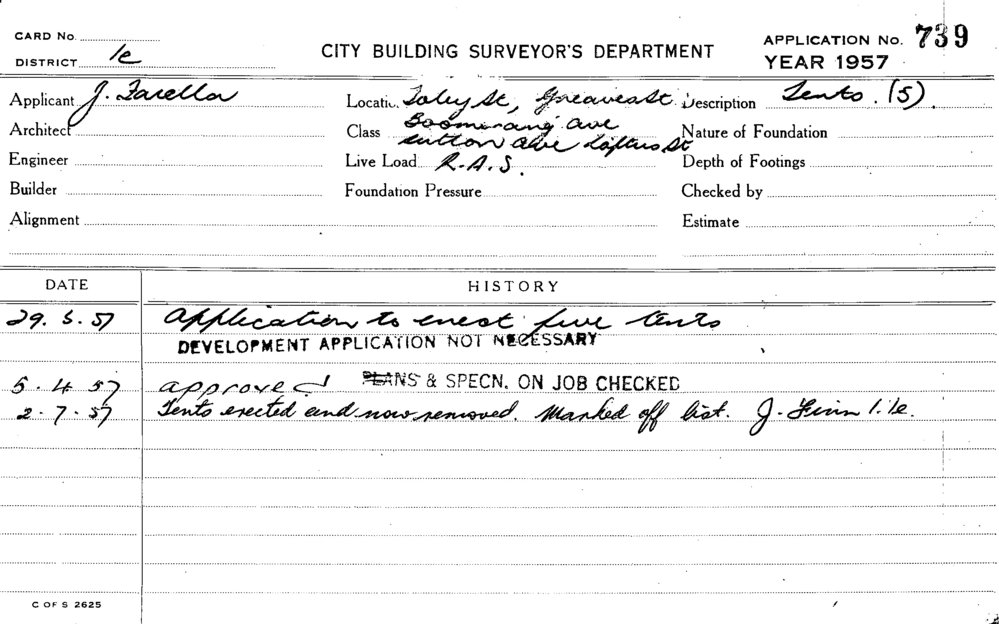 CARD No.
DISTRICT 1c
CITY BUILDING SURVEYOR'S DEPARTMENT
APPLICATION No. 739
YEAR 1957
Applicant J. Farella Locatic. Foley St, Greaves St. Description Tents. (5)
Architect Class Boomerang ave Nature of Foundation
sutton ave Loftus St
Engineer Live Load R.A.S. Depth of Footings
Builder Foundation Pressure Checked by
Alignment Estimate
DATE HISTORY
29. 3. 57 Application to erect five tents
DEVELOPMENT APPLICATION NOT NECESSARY
5. 4 57 approved PLANS & SPECN. ON JOB CHECKED
2. 7. 57 Tents erected and now removed. Marked off list. J.
C OF S 2625